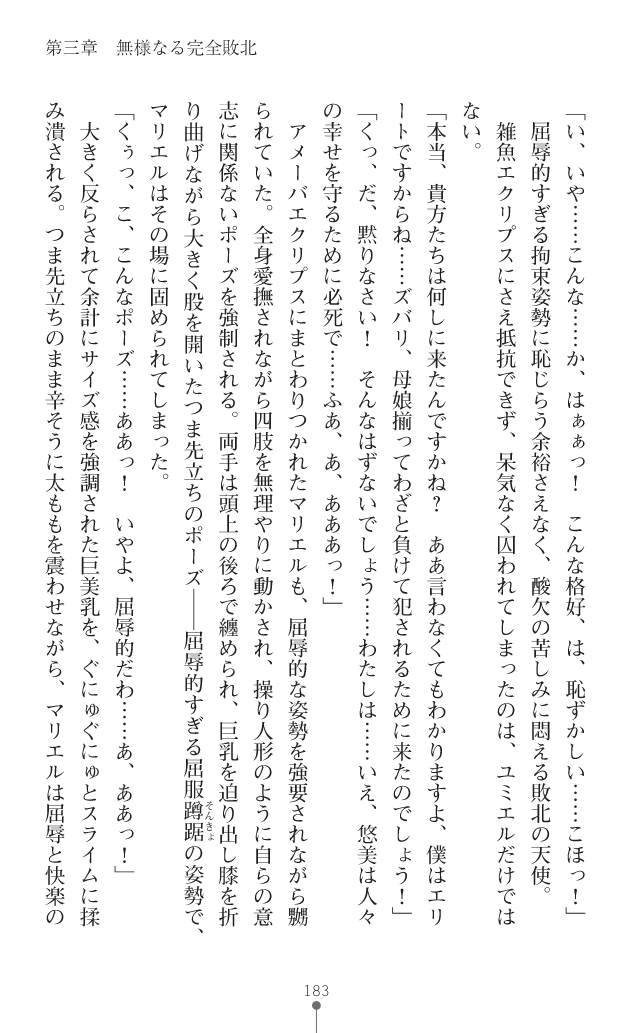 第三章　無様なる完全敗北
「い、いや……こんな……か、はぁぁっ！　こんな格好、は、恥ずかしい……こほっ！」
　屈辱的すぎる拘束姿勢に恥じらう余裕さえなく、酸欠の苦しみに悶える敗北の天使。
　雑魚エクリプスにさえ抵抗できず、呆気なく囚われてしまったのは、ユミエルだけでは
ない。
「本当、貴方たちは何しに来たんですかね？　ああ言わなくてもわかりますよ、僕はエリ
ートですからね……ズバリ、母娘揃ってわざと負けて犯されるために来たのでしょう！」
「くっ、だ、黙りなさい！　そんなはずないでしょう……わたしは……いえ、悠美は人々
の幸せを守るために必死で……ふあ、あ、あああっ！」
　アメーバエクリプスにまとわりつかれたマリエルも、屈辱的な姿勢を強要されながら嬲
られていた。全身愛撫されながら四肢を無理やりに動かされ、操り人形のように自らの意
志に関係ないポーズを強制される。両手は頭上の後ろで纏められ、巨乳を迫り出し膝を折
り曲げながら大きく股を開いたつま先立ちのポーズ――屈辱的すぎる屈服蹲踞そんきょの姿勢で、
マリエルはその場に固められてしまった。
「くぅっ、こ、こんなポーズ……ああっ！　いやよ、屈辱的だわ……あ、ああっ！」
　大きく反らされて余計にサイズ感を強調された巨美乳を、ぐにゅぐにゅとスライムに揉
み潰される。つま先立ちのまま辛そうに太ももを震わせながら、マリエルは屈辱と快楽の
183